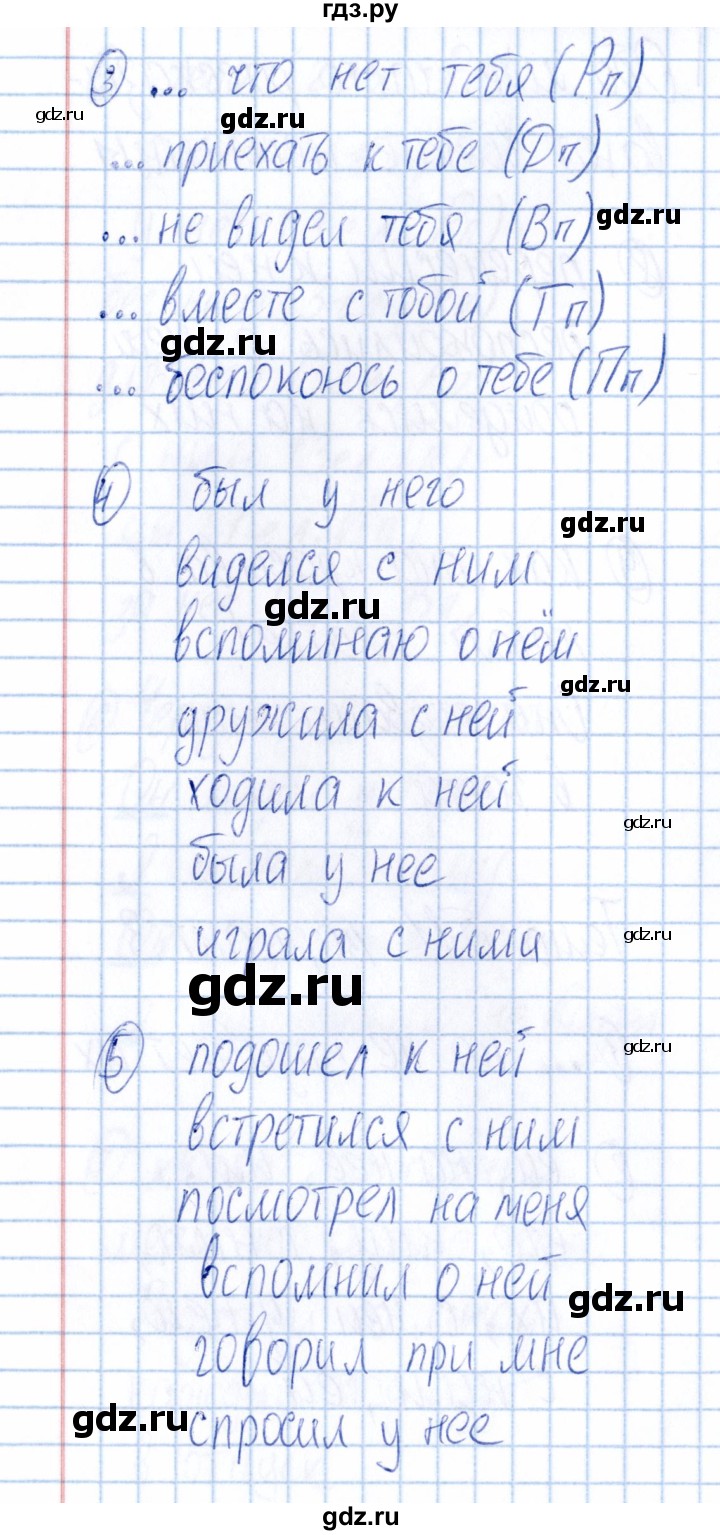 гдз.ру
③ ... что нет тебя (Рп)
gdz.ru
gdz.ru
... приехать к тебе (Дп)
... не видел тебя (Вп)
gdz.ru
... вместе с тобой (Тп)
gdz.ru
... беспокоюсь о тебе (Пп)
④ был у него
gdz.ru
виделся с ним
gdz.ru
вспоминаю о нём
gdz.ru
дружила с ней
ходила к ней
gdz.ru
была у нее
играла с ними
gdz.ru
gdz.ru
⑤ подошел к ней
gdz.ru
встретился с ним
посмотрел на меня
вспомнил о ней
gdz.ru
говорил при мне
gdz.ru
спросил у нее
gdz.ru